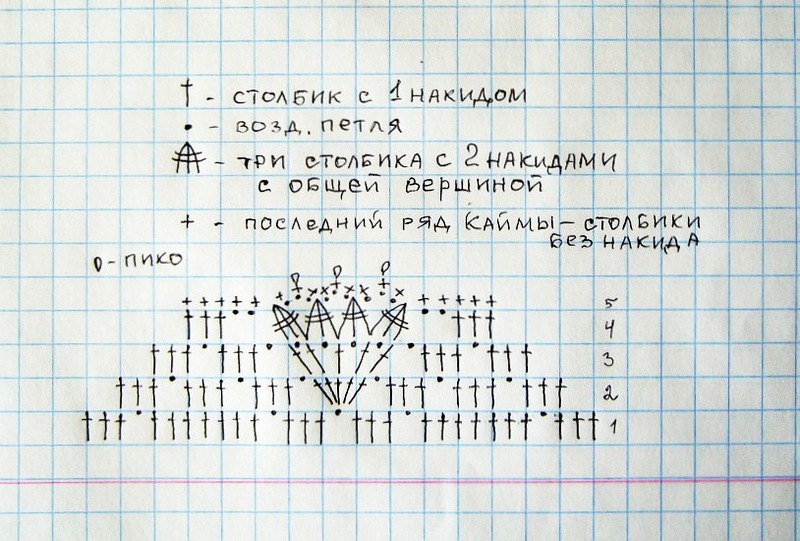 † - столбик с 1 накидом
• - возд. петля
- три столбика с 2 накидами
с общей вершиной
+ - последний ряд каймы - столбики
без накида
- пико
5
4
3
2
1